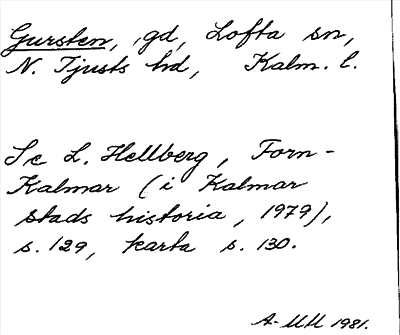 Gursten, gd, Lofta sn,
N. Tjusts hd, Kalm. l.
Se L. Hellberg, Forn-
Kalmar (i Kalmar
stads historia, 1979),
s. 129, karta s. 130.
A-MM 1981.